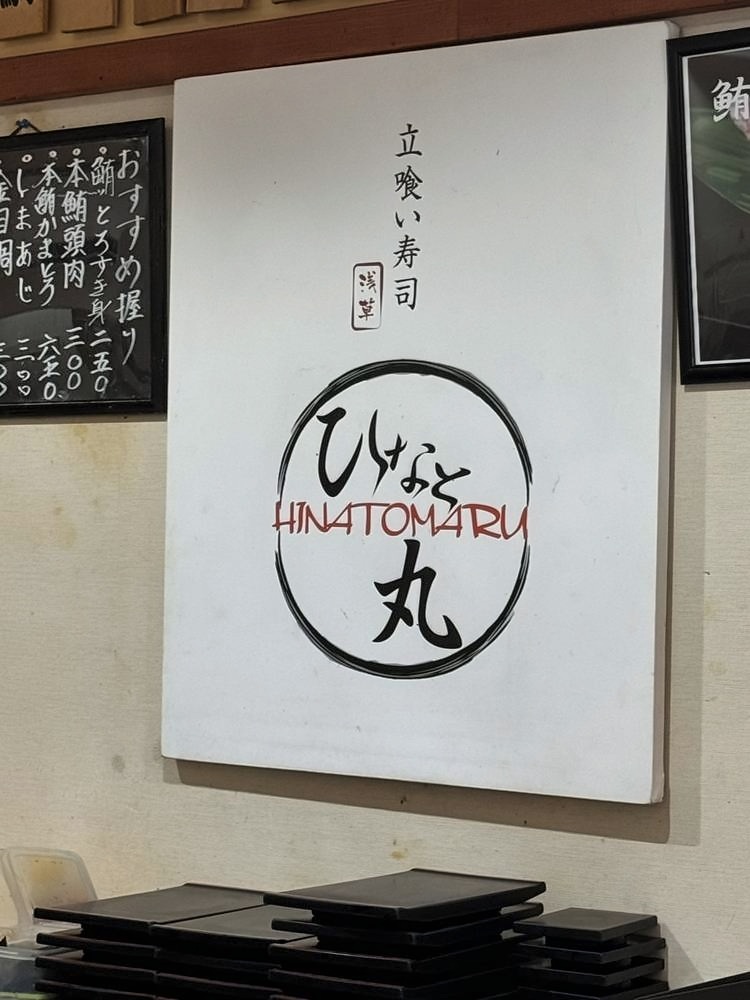 立喰い寿司
浅草
ひなと
HINATOMARU
丸
おすすめ握り
鮪とろすき身 二五〇
本鮪頭肉 三〇〇
本鮪かまとろ 六五〇
しまあじ 三〇〇
金目鯛 三〇〇
鮪